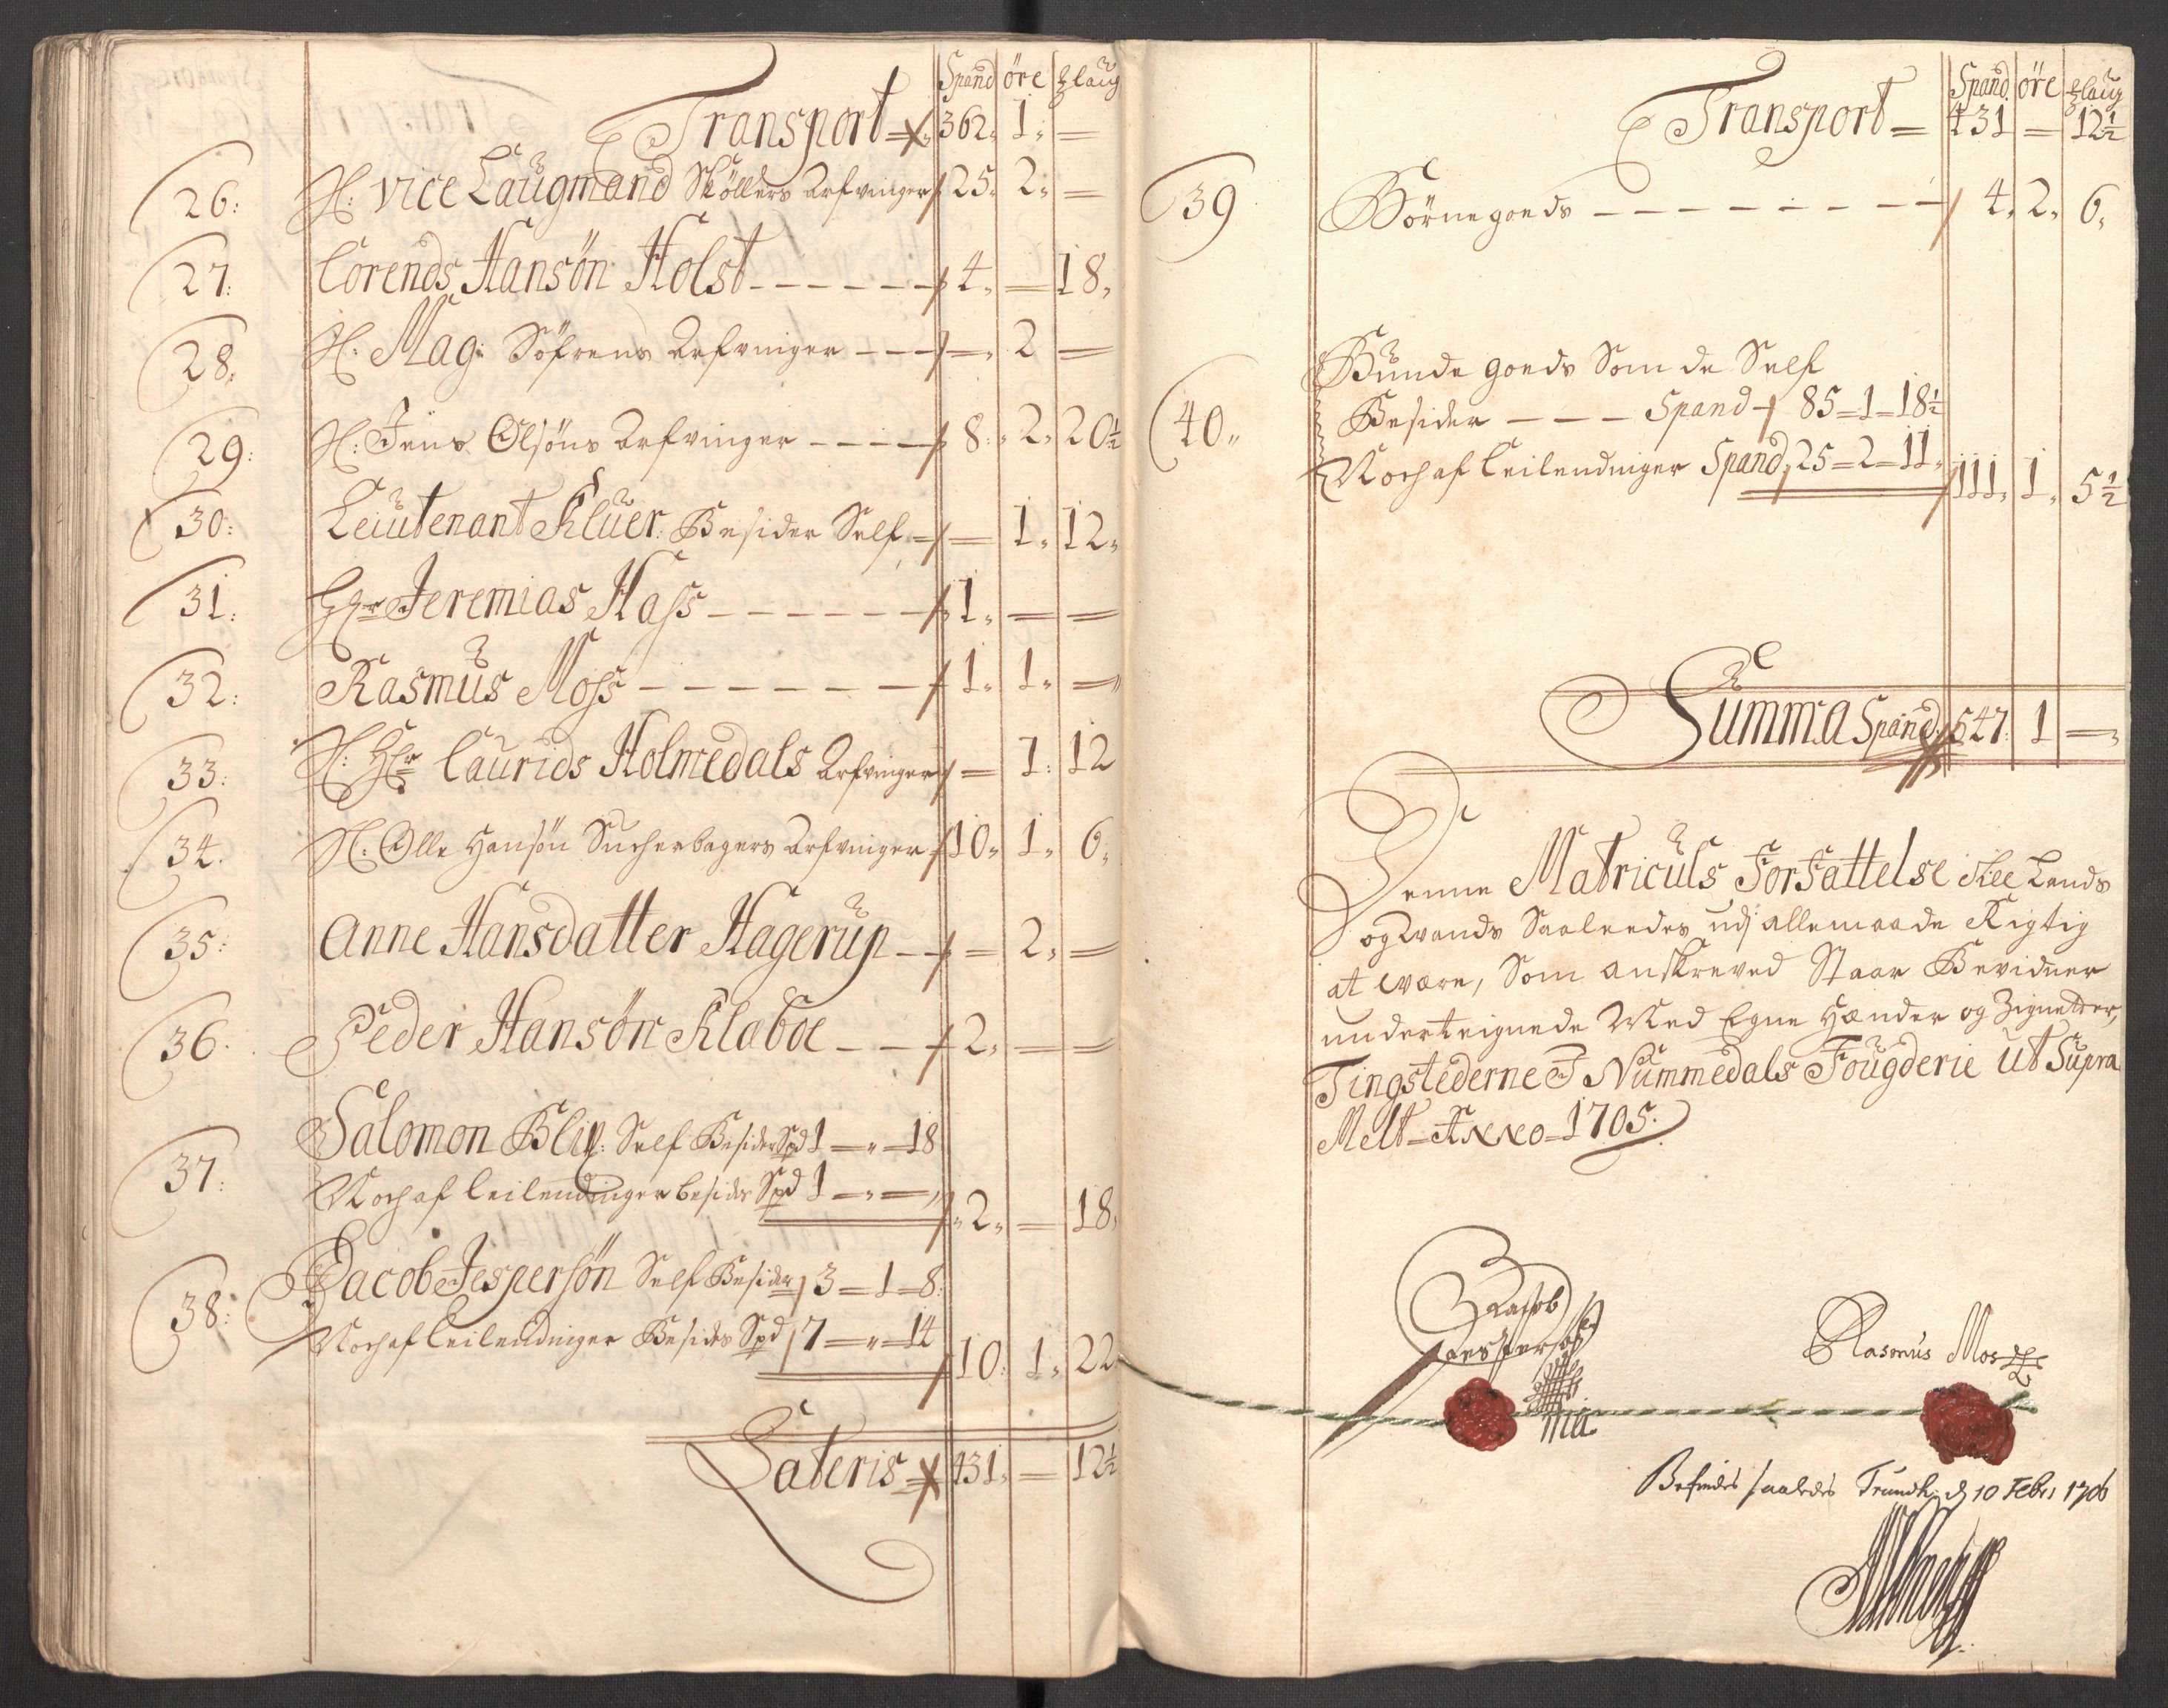 Spand øre ℔laug
Transport = 362. 1. =
26: H: Vice Laugmand Støllers Arfvinger 25. 2. =
27: Lorends Hansøn Holst - - - - - - 4. = 18.
28: H: Mag: Søfrens Arfvinger - - - =. 2 =
29: H: Jens Olsøns Arfvinger - - - - 8. 2. 20½
30: Leiutenant Klüer. Besider Self = 1. 12.
31: Hr Jeremias Hass - - - - - - 1. = =
32: Rasmus Moss - - - - - - - 1. 1. =
33: H: Hr Laurids Holmedals Arfvinger = 1. 12
34. H: Olle Hansøn Sucherbagers Arfvinger 10. 1. 6.
35: Anne Hansdatter Hagerup - - = 2. =
36. Peder Hansøn Klaboe - - - 2. = =
Salomon Blix: Self Besider Spd 1 = " = 18
37: Noch af Leilendinger besider Spd 1 = " =
2. = 18.
Jacob Jespersøn Self Besider 3 = 1 = 8.
38: Noch af Leilendinger Besider Spd 7 = " = 14
10. 1. 22
Lateris 431. = 12½
Spand øre ℔laug
Transport = 431 = 12½
39 Börnegoeds - - - - - - - - - 4. 2. 6.
Bunde goeds Som de Self
40. Besider - - - - Spand 85 = 1 = 18½
Noch af Leilendinger Spand 25 = 2 = 11.
111. 1. 5½
Summa Spand. 547. 1 =
Denne Matriculs Forfattelse Lands
og Wands Saaledes udj allemaade Rigtig
at were, Som anskreved Staar Bevidner
underteignede Med Egne Hænder og Zignetter,
Tingstederne I Nummedals Fougderie Ut Supra
Melt = Anno = 1705.
Jacob
Jespersøn
Rasmus Moss
mia
Befindes saaledes Trundh: d 10 Febr: 1706